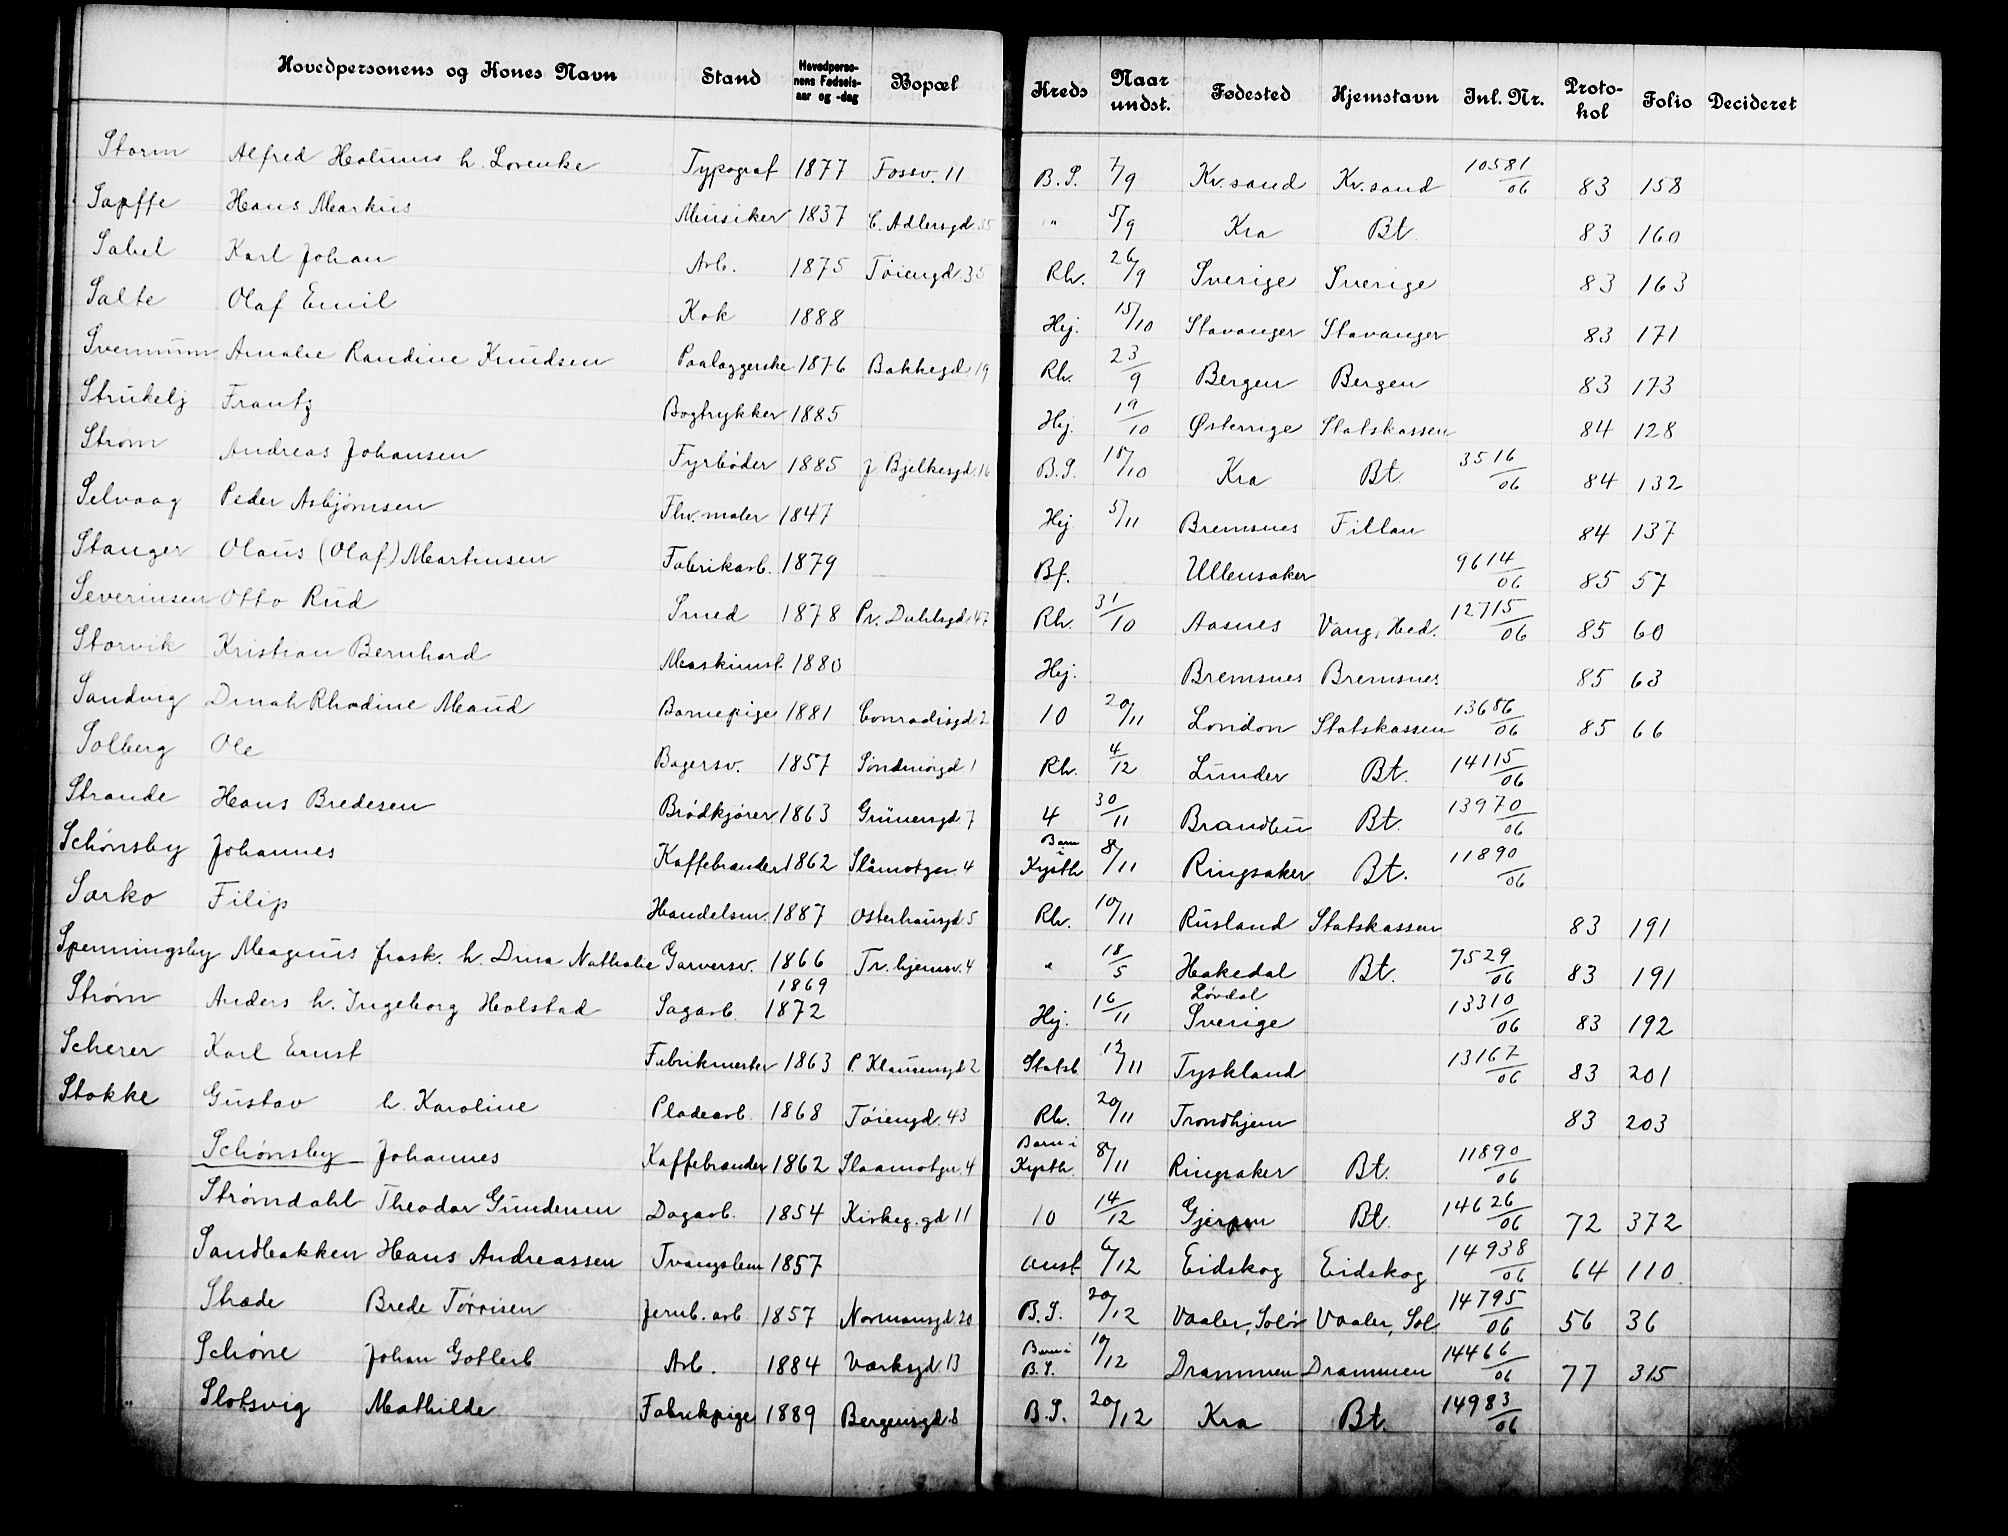 Hovedpersonens og Kones Navn Stand Hovedpersonens Fødselsaar og -dag Bopæl Kreds Naar undst. Fødested Hjemstavn Inl. Nr. Protokol Folio Decideret
Storm Alfred h. Lovenke Typograf 1877 Fossv. 11 B.S. 7/9 Kr.sand Kr.sand 10581/06 83 158
Sapffe Hans Markus Musiker 1837 C. Adlersgd. 35 " 5/9 Kra Bt. 83 160
Sabel Karl Johan Arb. 1875 Tøiengd. 35 Rh. 26/9 Sverige Sverige 83 163
Salte Olaf Emil Kok 1888 Hej. 15/10 Stavanger Stavanger 83 171
Svennum Amalie Randine Knudsen Paalæggerske 1876 Bakkegd. 19 Rh. 23/9 Bergen Bergen 83 173
Strukelj Frantz Bogtrykker 1885 Hej. 19/10 Østerrige Statskassen 84 128
Strøm Andreas Johansen Fyrbøder 1885 J. Bjelkesgd. 16 B.S. 18/10 Kra Bt. 3516/06 84 132
Selvaag Peder Asbjørnsen Fhv. maler 1847 Hej 5/11 Bremsnes Fillan 84 137
Stanger Olaus (Olaf) Martinsen Fabrikarb. 1879 Bf. Ullensaker 9614/06 85 57
Severinsen Otto Rud Smed 1878 Pr. Dahlsgd. 47 Rh. 31/10 Aasnes Vang, Hed. 12715/06 85 60
Storvik Kristian Bernhard Maskinist 1880 Hej. Bremsnes Bremsnes 85 63
Sandvig Dinah Rhodine Maud Barnepige 1881 Conradisgd. 2 10 20/11 London Statskassen 13686/06 85 66
Solberg Ole Bagersv. 1857 Søndmørgd 1 Rh. 4/12 Lunder Bt. 14115/06
Strande Hans Bredesen Brødkjører 1863 Grünersgd. 7 4 30/11 Brandbu Bt. 13970/06
Schønsby Johannes Kaffebrander 1862 Slåmotgn. 4 Barn i Kysth 8/11 Ringsaker Bt. 11890/06
Sarko Filip Handelsm. 1887 Osterhausgd. 5 Rh. 10/11 Rusland Statskassen 83 191
Spenningsby Magnus frask. h. Dina Nathalie Garversv. 1866 1869 Tr.hjemsv. 4 " 18/5 Hakedal Bt. 7529/06 83 191
Strøm Anders h. Ingeborg Halstad Sagarb. 1872 Hej. 16/11 Løvdal Sverige 13310/06 83 192
Scherer Karl Ernst Fabrikmester 1863 P. Klausensgd 2 Statsb 12/11 Tyskland 13167/06 83 201
Stokke Gustav h. Karoline Pladearb. 1868 Tøiengd. 43 Rh. 20/11 Trondhjem 83 203
Schønsby Johannes Kaffebrander 1862 Slaamotgn. 4 Barn i Kysth. 8/11 Ringsaker Bt. 11890/06
Strømdahl Theodor Gundersen Dagarb. 1854 Kirkeg.gd 11 10 14/12 Gjerpen Bt. 14626/06 72 372
Sandbakken Hans Andreassen Tvangslem 1857 anst 6/12 Eidskog Eidskog 14938/06 64 110
Stræde Brede Tørrisen Jernb. arb. 1857 Normansgd. 20 B.S. 20/12 Vaaler, Solør Vaaler, Sol. 14795/06 56 36
Schøne Johan Gotlieb Arb. 1884 Værksgd. 13 Barn i B.S. 10/12 Drammen Drammen 14466/06 77 315
Slotsvig Mathilde Fabrikpige 1889 Bergensgd. 8 B.S. 20/12 Kra Bt. 14983/06